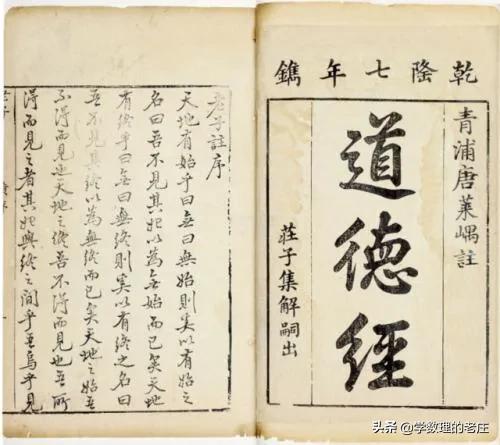 乾隆七年鐫
青浦唐萊嵎註
道德經
莊子集解嗣出
老子註序
天地有始乎曰無曰無始則奚以有始之
名曰吾不見其始以為無始而已矣天地
有終乎曰無曰無終則奚以有終之名曰
吾不見其終以為無終而已矣天地之始吾
不得而見也天地之終吾不得而見也吾所
得而見之者其始與終之間乎吾烏乎見
头条 @学数理的老庄